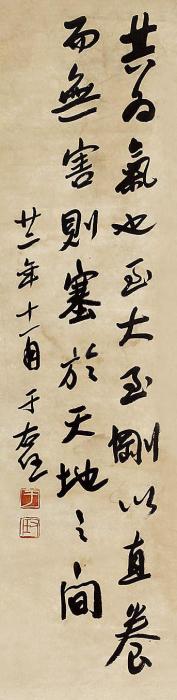 其为氣也至大至剛以直養
而無害則塞於天地之間
廿一年十一月于右任